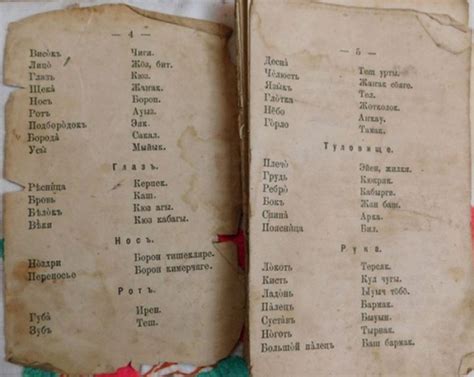 — 4 —
Висо̀къ Чигя.
Лицо̀ Жӧз, бит.
Глазъ Кюз.
Щека̀ Жаҥак.
Носъ Борон.
Ротъ Ауыз.
Подборо̀докъ Эяк.
Борода̀ Сакал.
Усы̀ Мыйык.
Глазъ.
Рѣснѝца Керпек.
Бровь Каш.
Бѣло̀къ Кюз агы.
Вѣки Кюз кабагы.
Носъ.
Но̀здри Борон тишекляре.
Переносье Борон кимерчяге.
Ротъ.
Губа̀ Ирен.
Зубъ Теш.
— 5 —
Десна̀ Теш урты.
Чѐлюсть Жаҥак сӧяге.
Язы̀къ Тел.
Гло̀тка Жотколок.
Нёбо Аҥкау.
Го̀рло Тамак.
Туловище.
Плечо̀ Эйен, жилкя.
Грудь Кюкряк.
Ребро̀ Кабырга.
Бокъ Жан баш.
Спина̀ Арка.
Пояснѝца Бил.
Рука.
Ло̀коть Терсяк.
Кисть Кул чугы.
Ладо̀нь тӧбӧ.
Па̀лецъ Бармак.
Суста̀въ Быуын.
Но̀готь Тырнак.
Большо̀й па̀лецъ Баш бармак.